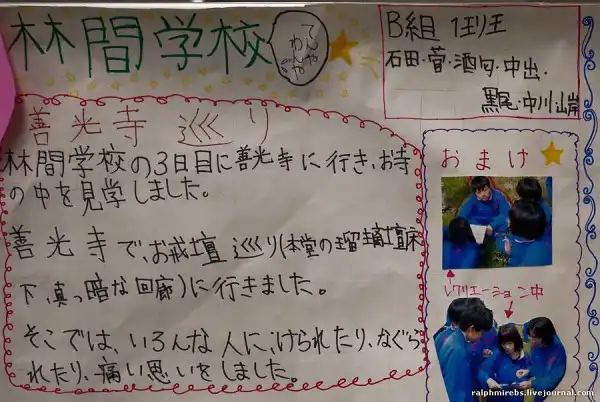 林間学校
てんや
わんや
B組 1班
石田・菅・酒匂・中出・
黒尾・中川・山岸
善光寺 巡り
林間学校の3日目に善光寺に行き、お寺
の中を見学しました。
善光寺で、お戒壇巡り(本堂の瑠璃壇床
下、真っ暗な回廊)に行きました。
そこでは、いろんな人に、けられたり、なぐら
れたり、痛い思いをしました。
おまけ
レクリエーション中
ralphmirebs.livejournal.com